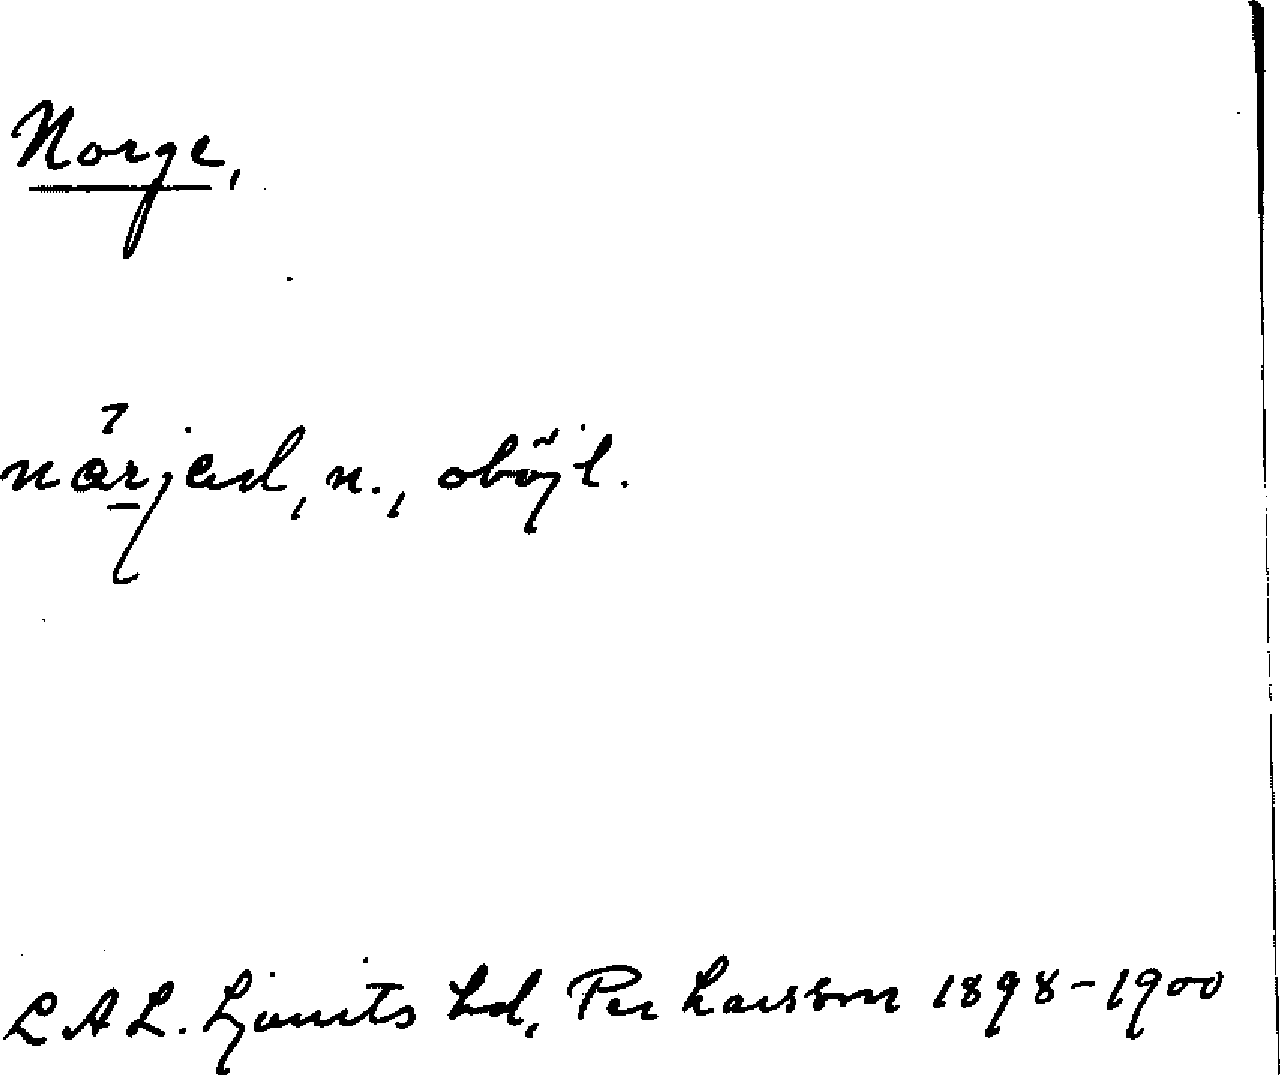 Norge,
nǻrjəd, n., oböjl.
LAL. Ljunits hd, Per Larsson 1898-1900